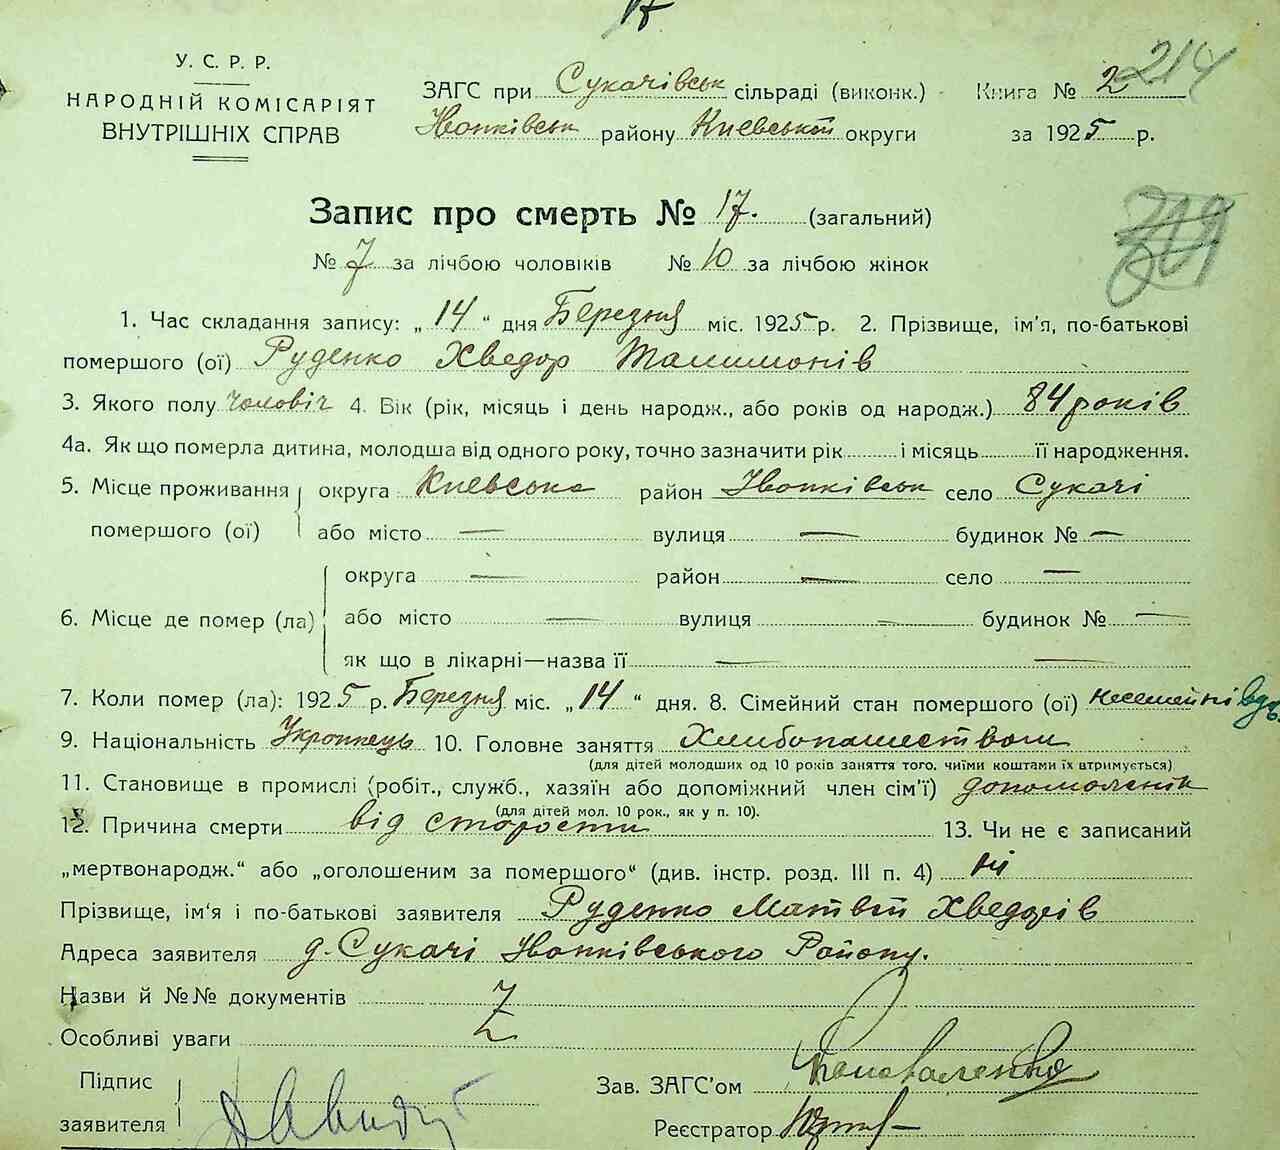 17
У. С. Р. Р.
НАРОДНІЙ КОМІСАРІЯТ
ВНУТРІШНІХ СПРАВ
ЗАГС при Сукачівськ сільраді (виконк.)
Іванківськ району Киевської округи
Книга № 2 214
за 1925 р.
Запис про смерть № 17. (загальний)
№ 7 за лічбою чоловіків № 10 за лічбою жінок
1. Час складання запису: „14“ дня Березня міс. 1925 р. 2. Прізвище, ім'я, по-батькові
помершого (ої) Руденко Хведор Талимонів
3. Якого полу чоловіч 4. Вік (рік, місяць і день народж., або років од народж.) 84 років
4а. Як що померла дитина, молодша від одного року, точно зазначити рік і місяць її народження.
5. Місце проживання помершого (ої) округа Киевська район Іванківськ село Сукачі
або місто — вулиця — будинок № —
6. Місце де помер (ла) округа — район — село —
або місто — вулиця — будинок № —
як що в лікарні—назва її — —
7. Коли помер (ла): 1925 р. Березня міс. „14“ дня. 8. Сімейний стан помершого (ої) несемейні вдів
9. Національність Украинець 10. Головне заняття Хлибопашеством
(для дітей молодших од 10 років заняття того, чиїми коштами їх втримується)
11. Становище в промислі (робіт., служб., хазяїн або допоміжний член сім'ї)
(для дітей мол. 10 рок., як у п. 10).
12. Причина смерти від старости 13. Чи не є записаний
„мертвонародж.“ або „оголошеним за помершого“ (див. інстр. розд. III п. 4) ні
Прізвище, ім'я і по-батькові заявителя Руденко Матвій Хведорів
Адреса заявителя д. Сукачі Іванківського Району.
Назви й №№ документів
Особливі уваги
Підпис заявителя
Зав. ЗАГС'ом Коноваленко
Реєстратор